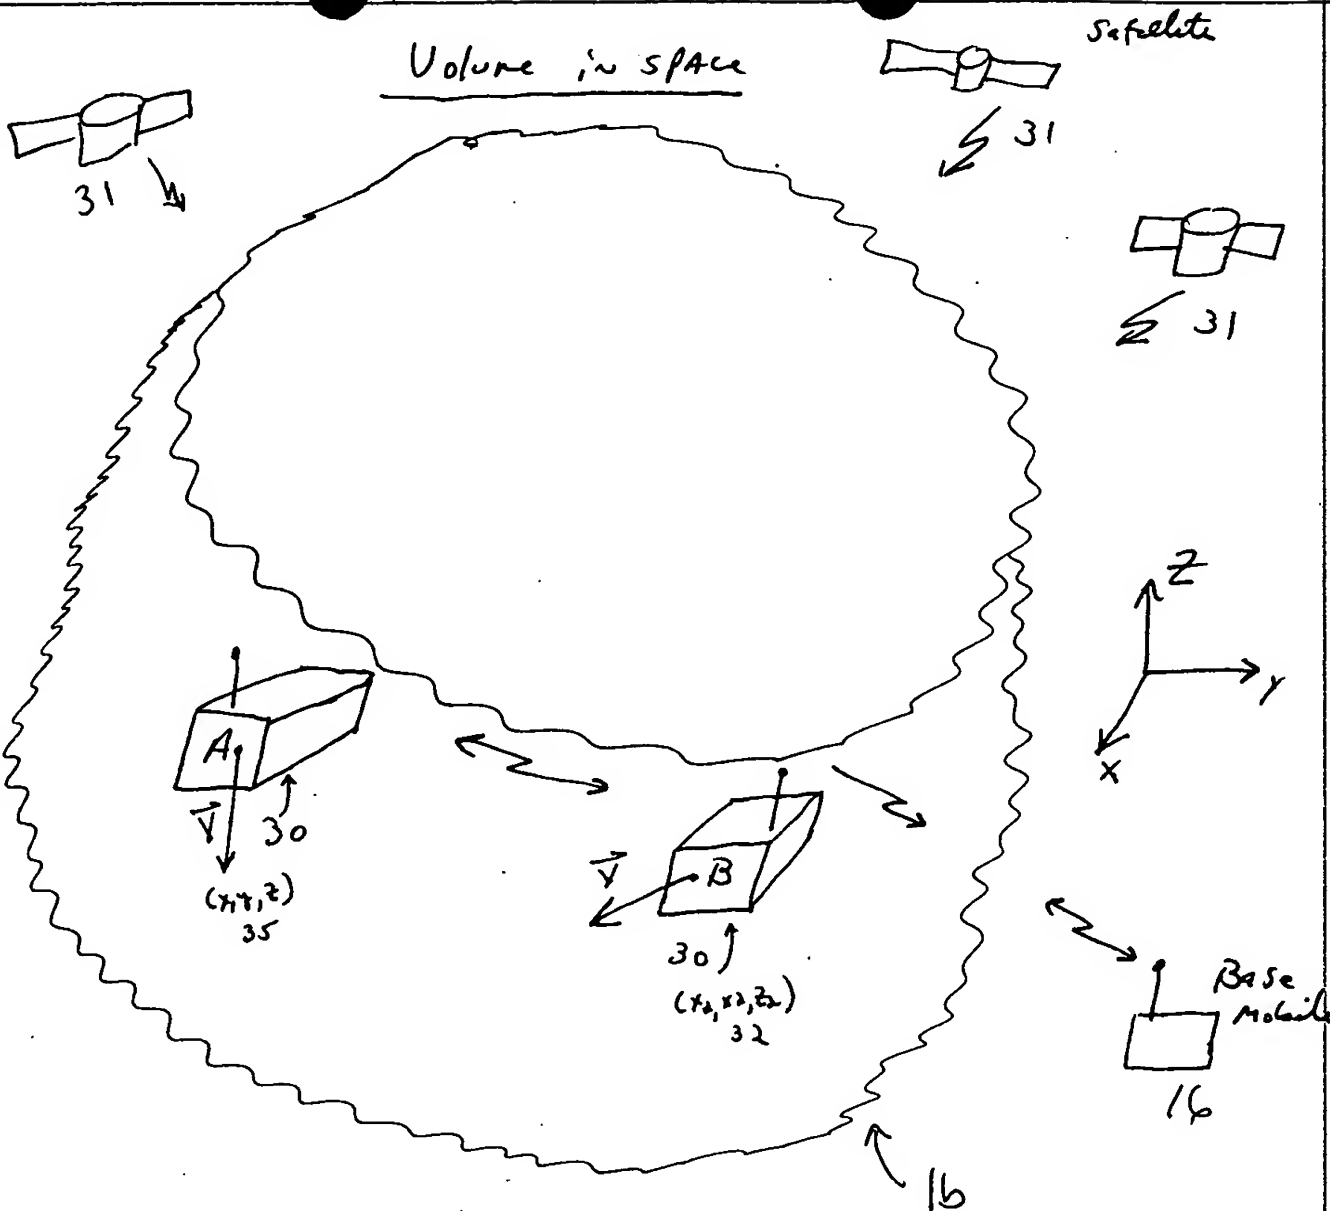 Volume in space
Satellite
31
31
31
Z
Y
X
A
V
30
(x,y,z)
35
V
B
30
(x₂,x₂,z₂)
32
Base
Mobile
16
1b